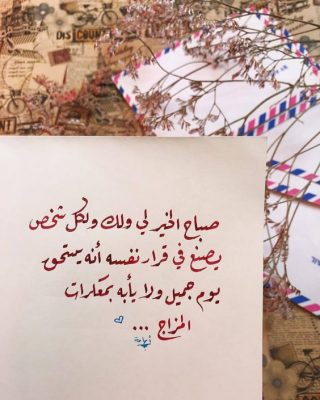 صباح الخير لي ولك ولكل شخص
يصنع في قرار نفسه أنه يستحق
يوم جميل ولا يأبه بمعكرات
المزاج ...